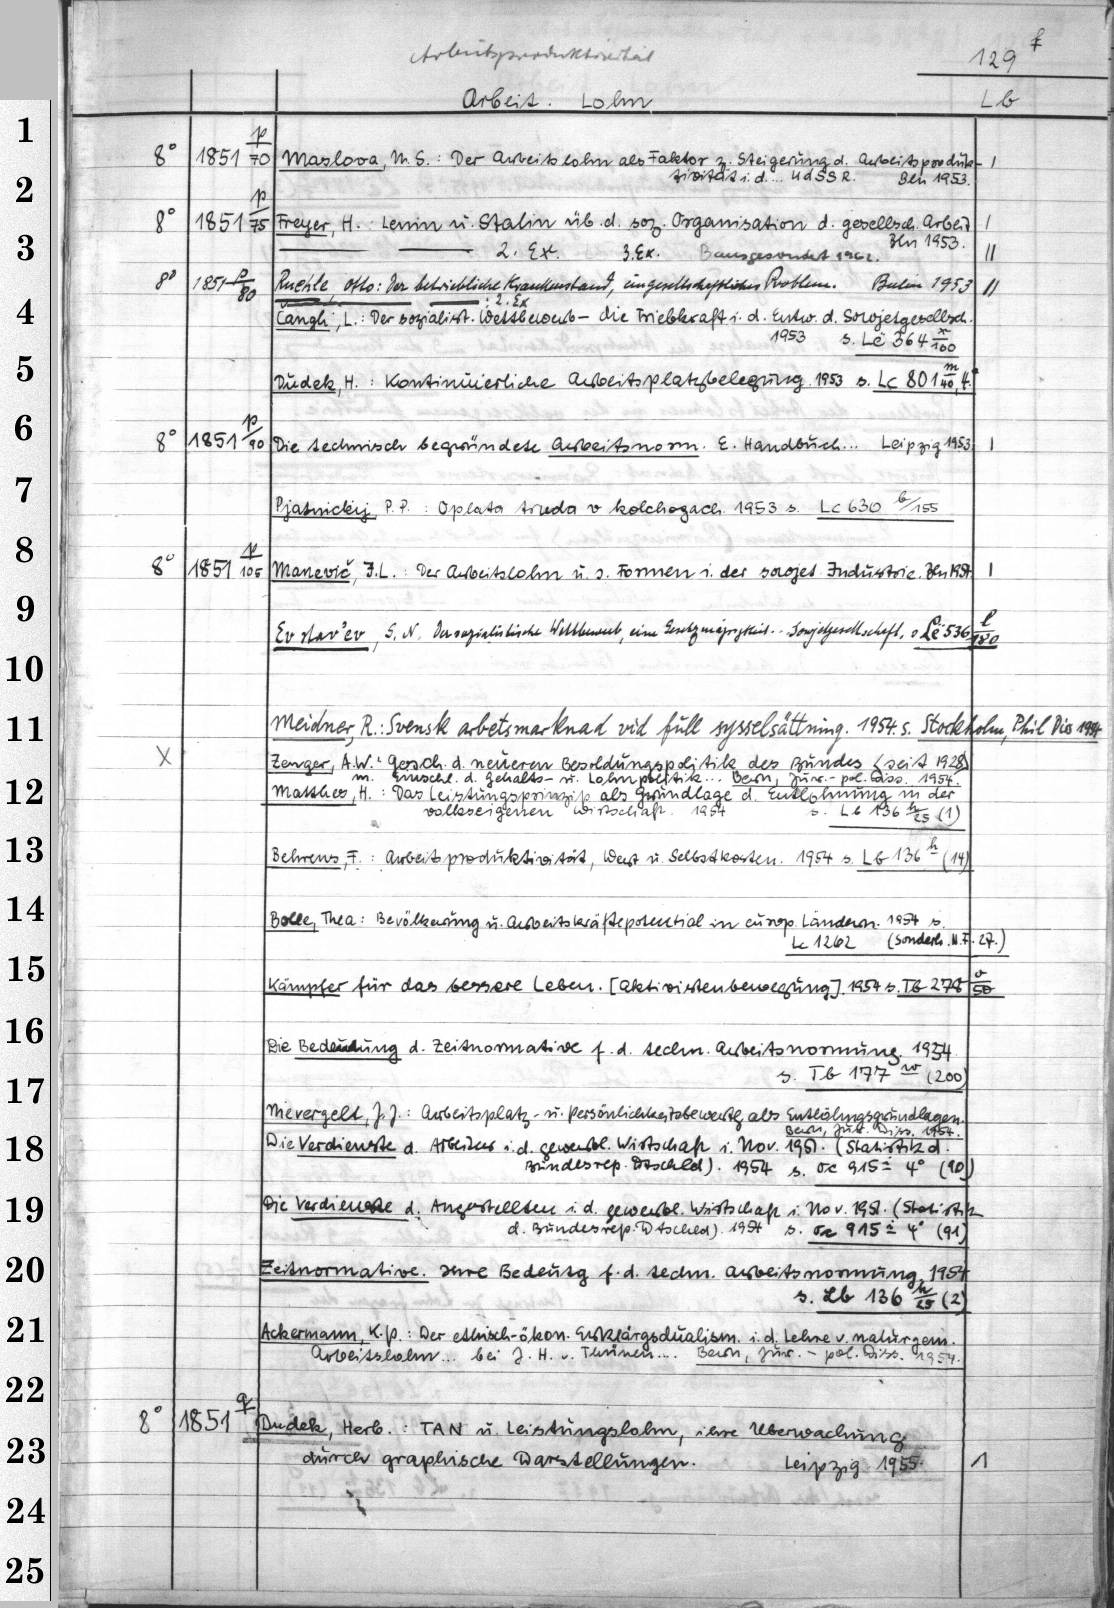 Arbeitsproduktivität
129 f
Arbeit. Lohn Lb
1
8° 1851 p/70 Maslova, M. S.: Der Arbeitslohn als Faktor z. Steigerung d. Arbeitsproduk- I
tivität i. d... UdSSR. Bln 1953.
2
8° 1851 p/75 Freyer, H. Lenin u. Stalin üb. d. soz. Organisation d. gesellsch. Arbeit I
Bln 1953.
3
2. Ex. 3. Ex. II
8° 1851 p/80 Ruehle Otto: Der betriebliche Krankenstand, ein gesellschaftliches Problem. Berlin 1953 II
: 2. Ex
4
Čangli, L.: Der sozialist. Wettbewerb – die Triebkraft i. d. Entw. d. Sowjetgesellsch.
1953 s. Lë 364 x/100
5
Dudek, H.: Kontinuierliche Arbeitsplatzbelegung. 1953 s. Lc 801 m/40, 4.°
6
8° 1851 p/90 Die technisch begründete Arbeitsnorm. E. Handbuch... Leipzig 1953 I
7
Pjatnickij, P. P.: Oplata truda v kolchozach. 1953 s. Lc 630 b/155
8
8° 1851 p/105 Manevič, J. L.: Der Arbeitslohn u. s. Formen i. der sowjet. Industrie. Bln 1954. I
9
Evstav'ev, S. N. Der sozialistische Wettbewerb, eine Gesetzmässigkeit.. Sowjetgesellschaft. s Lë 536 l/180
10
11
Meidner, R.: Svensk arbetsmarknad vid full sysselsättning. 1954. s. Stockholm, Phil Dis 1954
X
Zenger, A.W.: Gesch. d. neueren Besoldungspolitik des Bundes (seit 1928)
m. Einschl. d. Gehalts- u. Lohnpolitik... Bern, Jur.-pol. Diss. 1954.
12
Matthes, H.: Das Leistungsprinzip als Grundlage d. Entlohnung in der
volkseigenen Wirtschaft. 1954 s. Lb 136 h/25 (1)
13
Behrens, F.: Arbeitsproduktivität, Wert u. Selbstkosten. 1954 s. Lb 136 h (14)
14
Bolle, Thea: Bevölkerung u. Arbeitskräftepotential in europ. Ländern. 1954 s.
Lc 1262 (Sonderh. N.F. 27.)
15
Kämpfer für das bessere Leben. [Aktivistenbewegung]. 1954 s. Tb 278 v/50
16
Die Bedeutung d. Zeitnormative f. d. techn. Arbeitsnormung. 1954.
s. Tb 177 w (200)
17
Nievergelt, J. J.: Arbeitsplatz- u. Persönlichkeitsbewertg als Entlöhngsgrundlagen.
Bern, Jur. Diss. 1954.
18
Die Verdienste d. Arbeiter i. d. gewerbl. Wirtschaft i. Nov. 1951. (Statistik d.
Bundesrep. Dtschld). 1954 s. Oc 915 i 4° (90)
19
Die Verdienste d. Angestellten i. d. gewerbl. Wirtschaft i. Nov. 1951. (Statistik
d. Bundesrep. Dtschld). 1954 s. Oc 915 i 4° (91)
20
Zeitnormative. Ihre Bedeutg f. d. techn. Arbeitsnormung. 1954
s. Lb 136 h/25 (2)
21
Ackermann, K. P.: Der ethisch-ökon. Erklärgsdualism. i. d. Lehre v. naturgem.
Arbeitslohn... bei J. H. v. Thünen... Bern, Jur.-pol. Diss. 1954.
22
8° 1851 q Dudek, Herb.: TAN u. Leistungslohn, ihre Überwachung
23
durch graphische Darstellungen. Leipzig 1955. 1
24
25